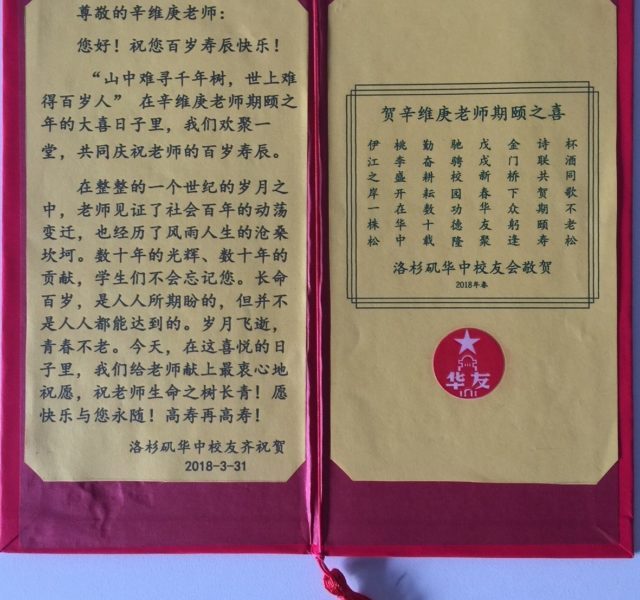 尊敬的辛维庚老师：
您好！祝您百岁寿辰快乐！
“山中难寻千年树，世上难
得百岁人” 在辛维庚老师期颐之
年的大喜日子里，我们欢聚一
堂，共同庆祝老师的百岁寿辰。
在整整的一个世纪的岁月之
中，老师见证了社会百年的动荡
变迁，也经历了风雨人生的沧桑
坎坷。数十年的光辉、数十年的
贡献，学生们不会忘记您。长命
百岁，是人人所期盼的，但并不
是人人都能达到的。岁月飞逝，
青春不老。今天，在这喜悦的日
子里，我们给老师献上最衷心地
祝愿，祝老师生命之树长青！愿
快乐与您永随！高寿再高寿！
洛杉矶华中校友齐祝贺
2018-3-31
贺辛维庚老师期颐之喜
伊江之岸一株松
桃李盛开在华中
勤奋耕耘数十载
驰骋校园功德隆
戊戌新春华友聚
金门桥下众躬逢
诗联共贺期颐寿
杯酒同歌不老松
洛杉矶华中校友会敬贺
2018年春
华友